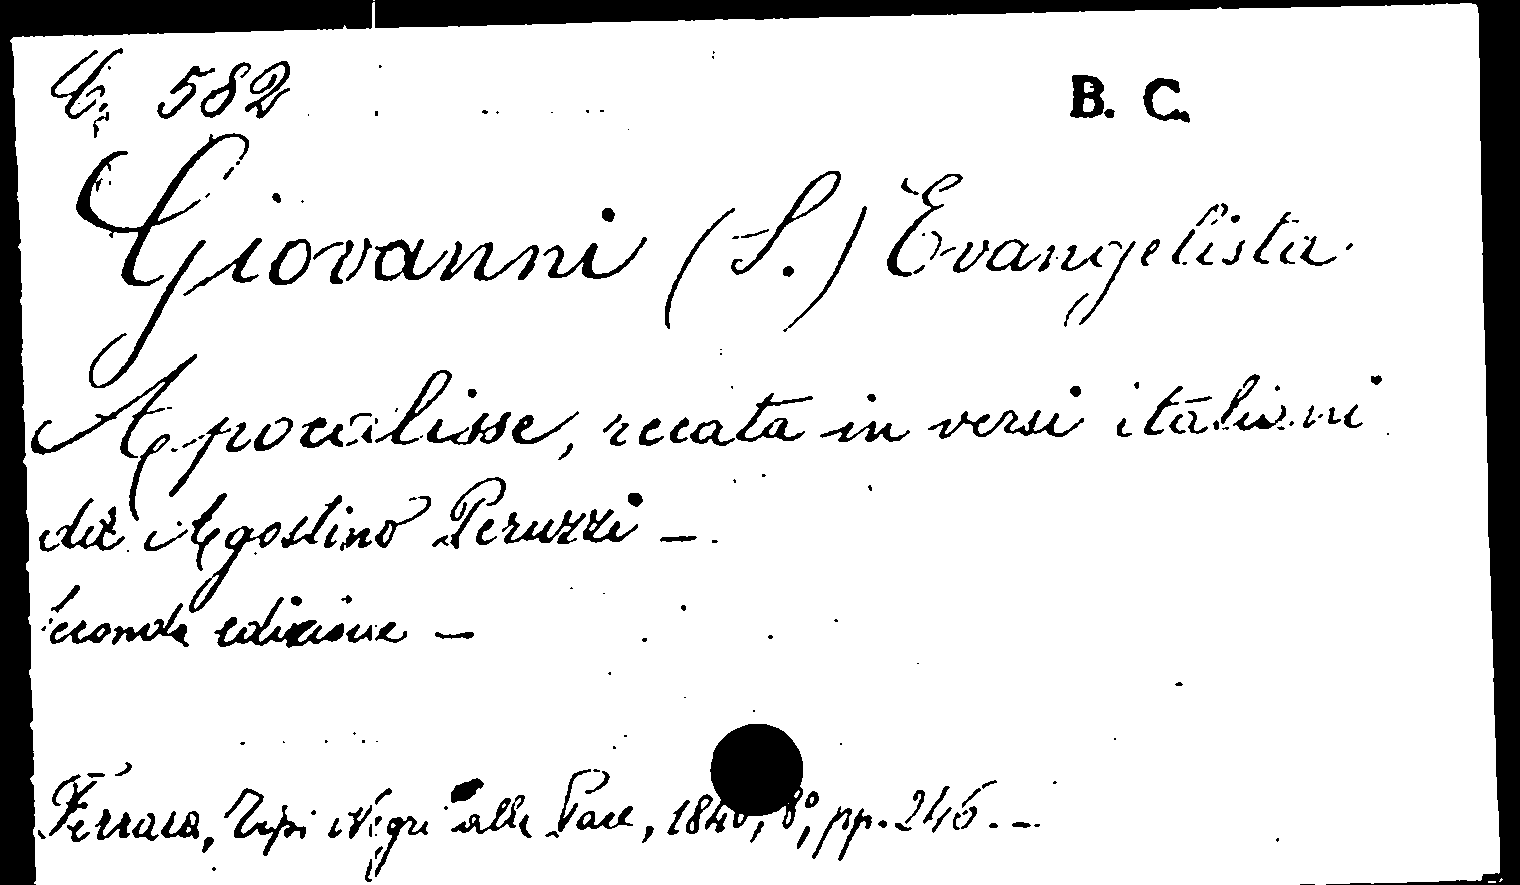 C, 582 B. C.
Giovanni (S.) Evangelista
Apocalisse, recata in versi italiani
da Agostino Peruzzi —
Seconda edizione —
Ferrara, Tipi Negri alla Pace, 1840, 8°, pp. 246. —